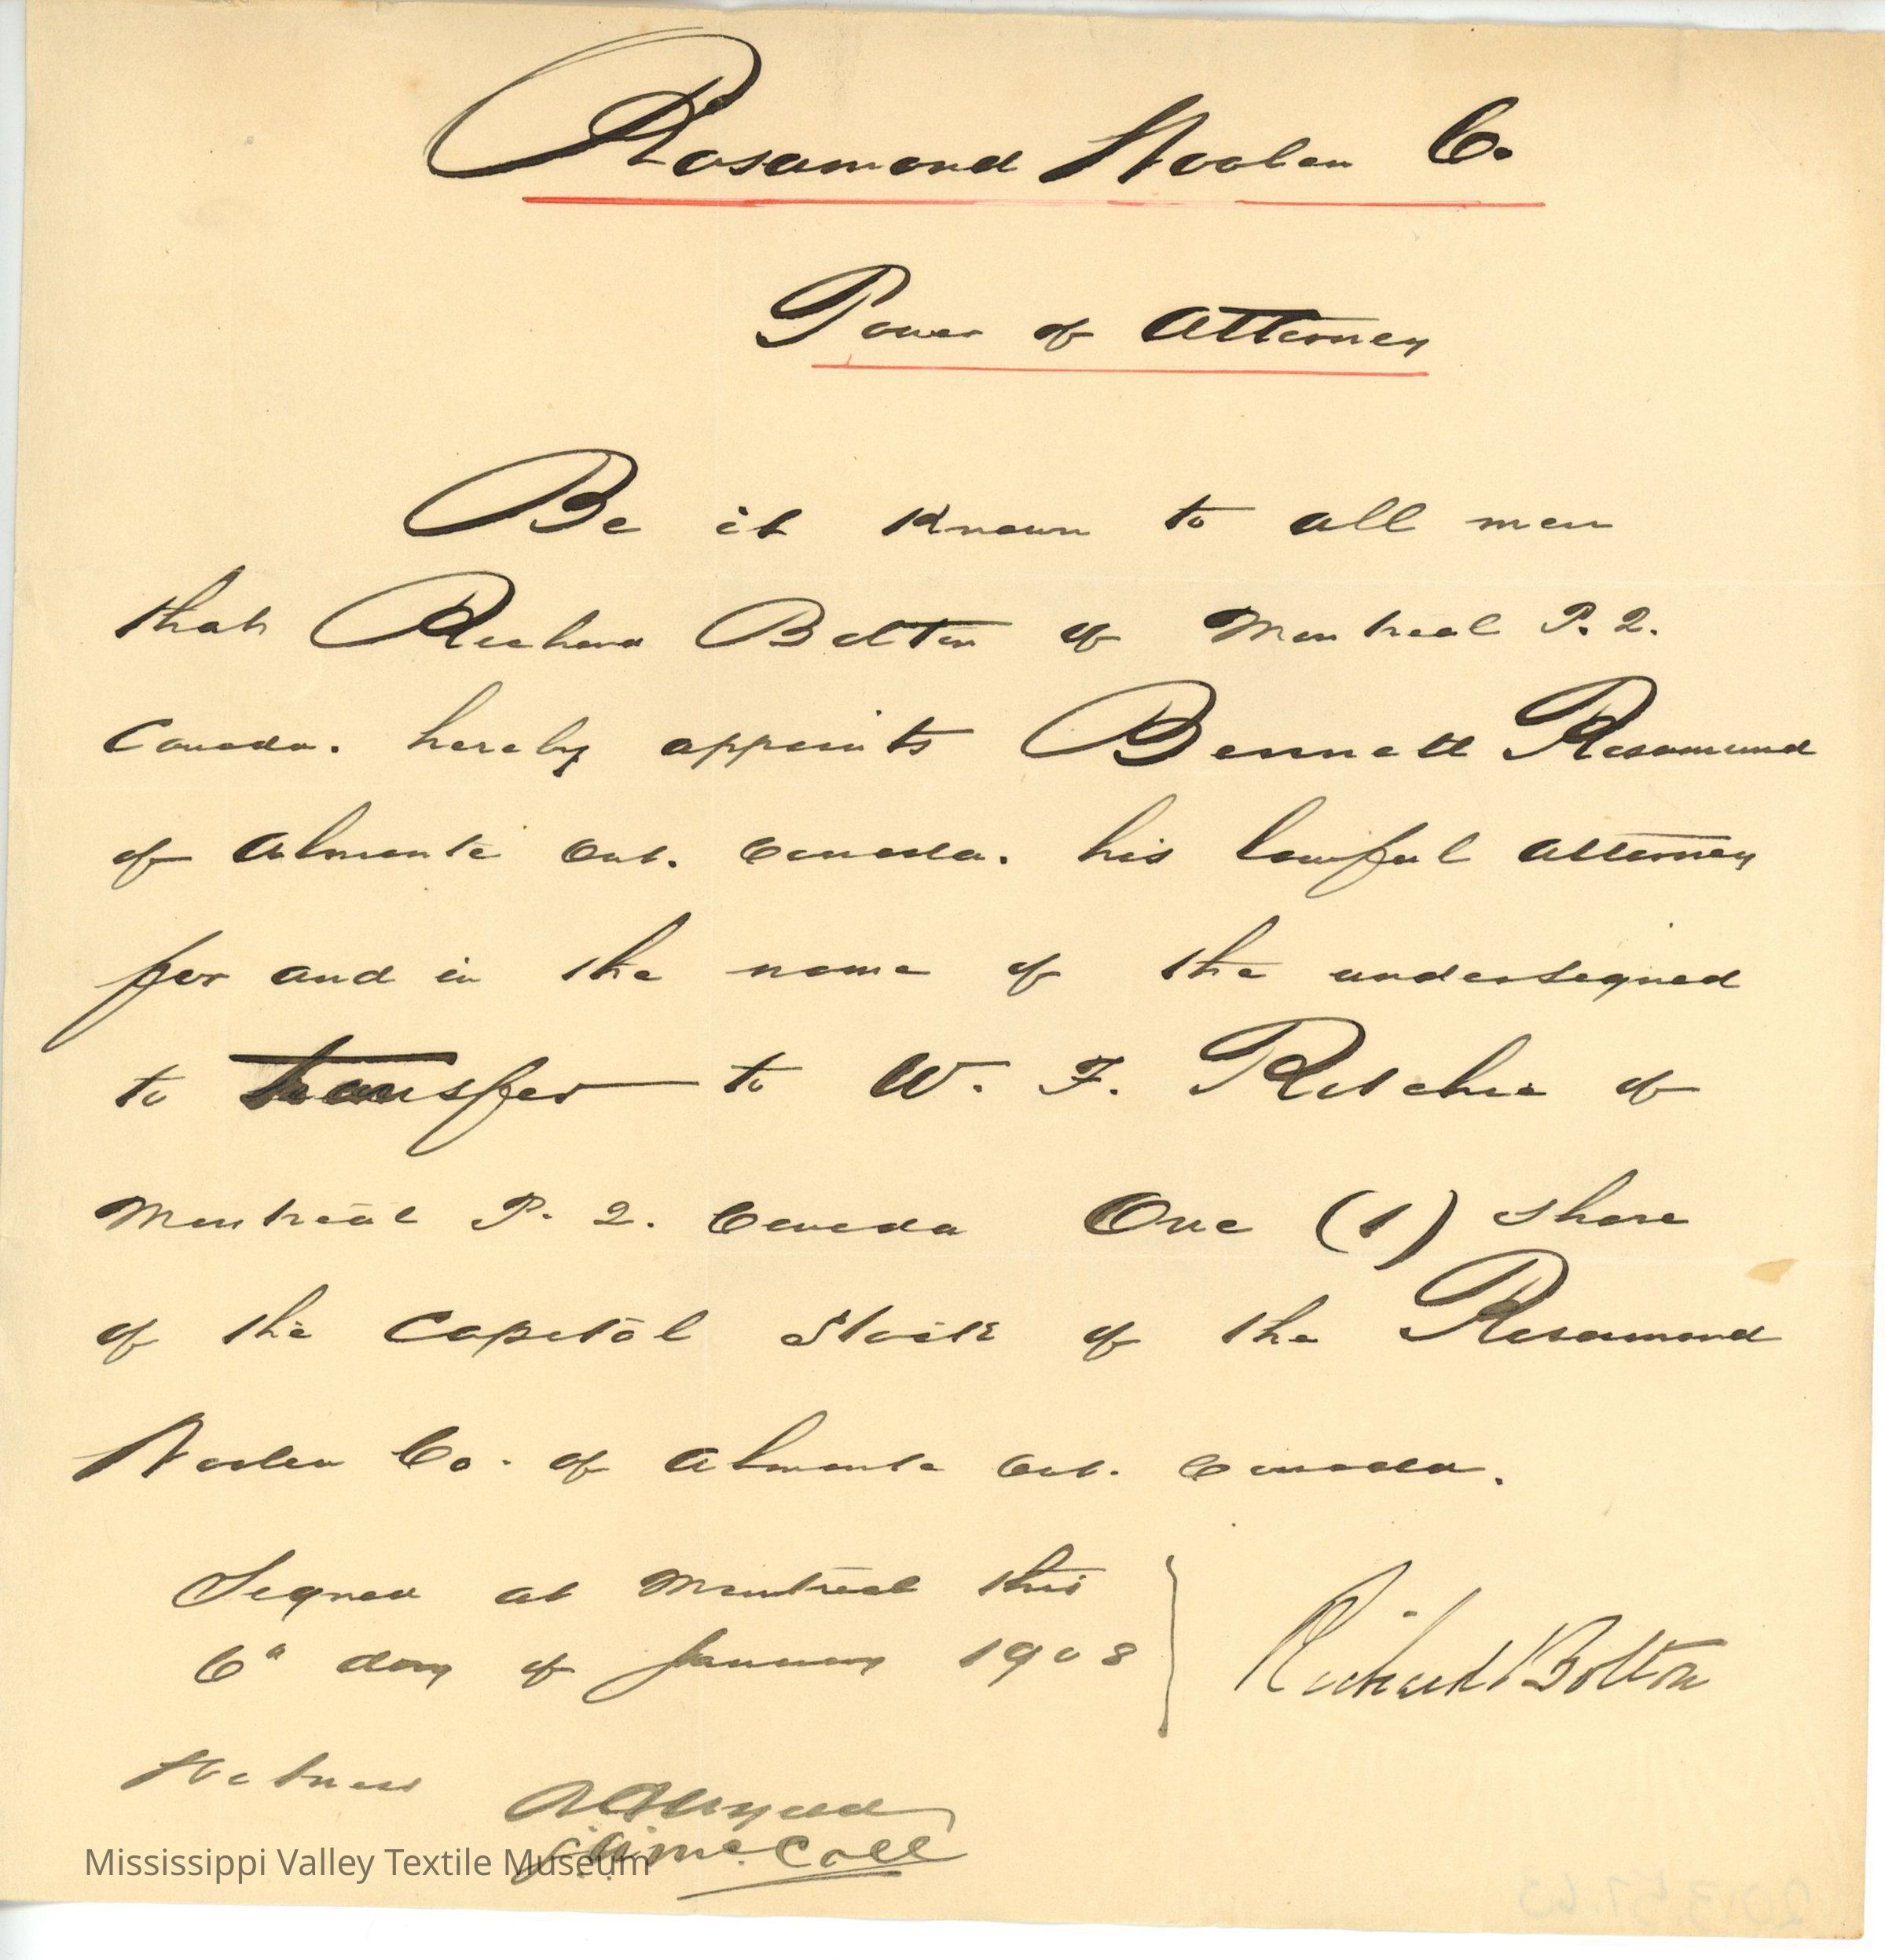 Rosamond Woolen Co.
Power of Attorney
Be it known to all men
that Richard Bolton of Montreal P. Q.
Canada. hereby appoints Bennett Rosamond
of Almonte Ont. Canada. his lawful Attorney
for and in the name of the undersigned
to transfer to W. F. Ritchie of
Montreal P. Q. Canada One (1) share
of the Capital Stock of the Rosamond
Woolen Co. of Almonte Ont. Canada.
Signed at Montreal this
6" day of January 1908
Richard Bolton
Witness
McColl
Mississippi Valley Textile Museum
2013.57.63